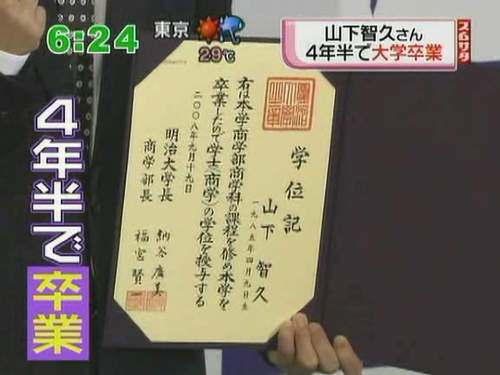 6:24
東京
29℃
山下智久さん
4年半で大学卒業
スムリタ
4年半で卒業
学位記
山下智久
一九八五年四月九日生
右は本学商学部商学科の課程を修め本学を
卒業したので学士(商学)の学位を授与する
二〇〇八年九月十九日
明治大学長 納谷廣美
商学部長 福宮賢一